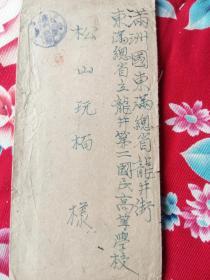 滿洲國東滿總省龍井街
東滿總省立龍井第二國民高等學校
松山玩栖 樣